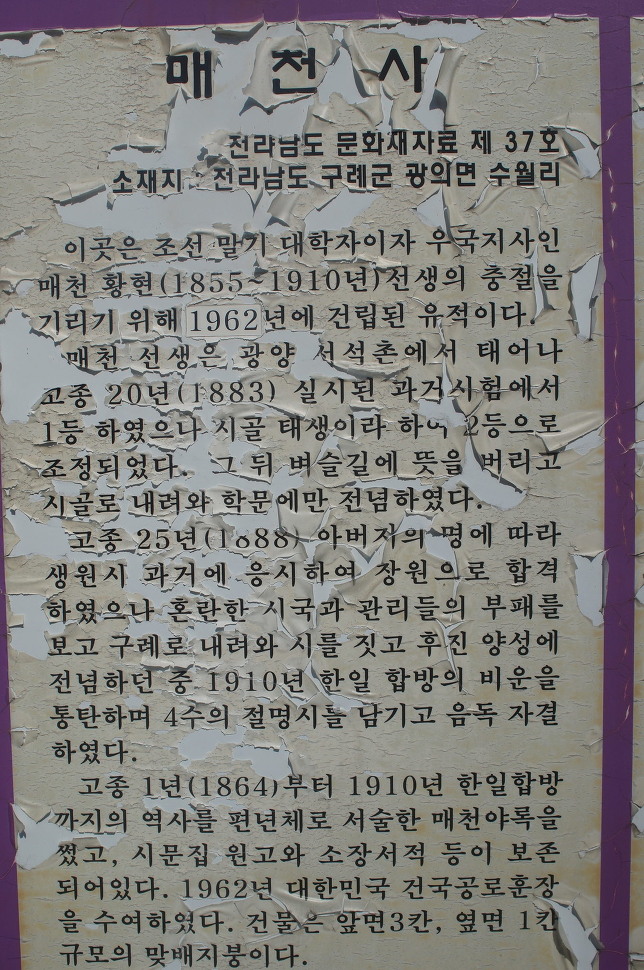 매 천 사
전라남도 문화재자료 제 37호
소재지 : 전라남도 구례군 광의면 수월리
이곳은 조선 말기 대학자이자 우국지사인
매천 황현(1855~1910년)선생의 충절을
기리기 위해 1962년에 건립된 유적이다.
매천 선생은 광양 서석촌에서 태어나
고종 20년(1883) 실시된 과거시험에서
1등 하였으나 시골 태생이라 하여 2등으로
조정되었다. 그 뒤 벼슬길에 뜻을 버리고
시골로 내려와 학문에만 전념하였다.
고종 25년(1888) 아버지의 명에 따라
생원시 과거에 응시하여 장원으로 합격
하였으나 혼란한 시국과 관리들의 부패를
보고 구례로 내려와 시를 짓고 후진 양성에
전념하던 중 1910년 한일 합방의 비운을
통탄하며 4수의 절명시를 남기고 음독 자결
하였다.
고종 1년(1864)부터 1910년 한일합방
까지의 역사를 편년체로 서술한 매천야록을
썼고, 시문집 원고와 소장서적 등이 보존
되어있다. 1962년 대한민국 건국공로훈장
을 수여하였다. 건물은 앞면3칸, 옆면 1칸
규모의 맞배지붕이다.